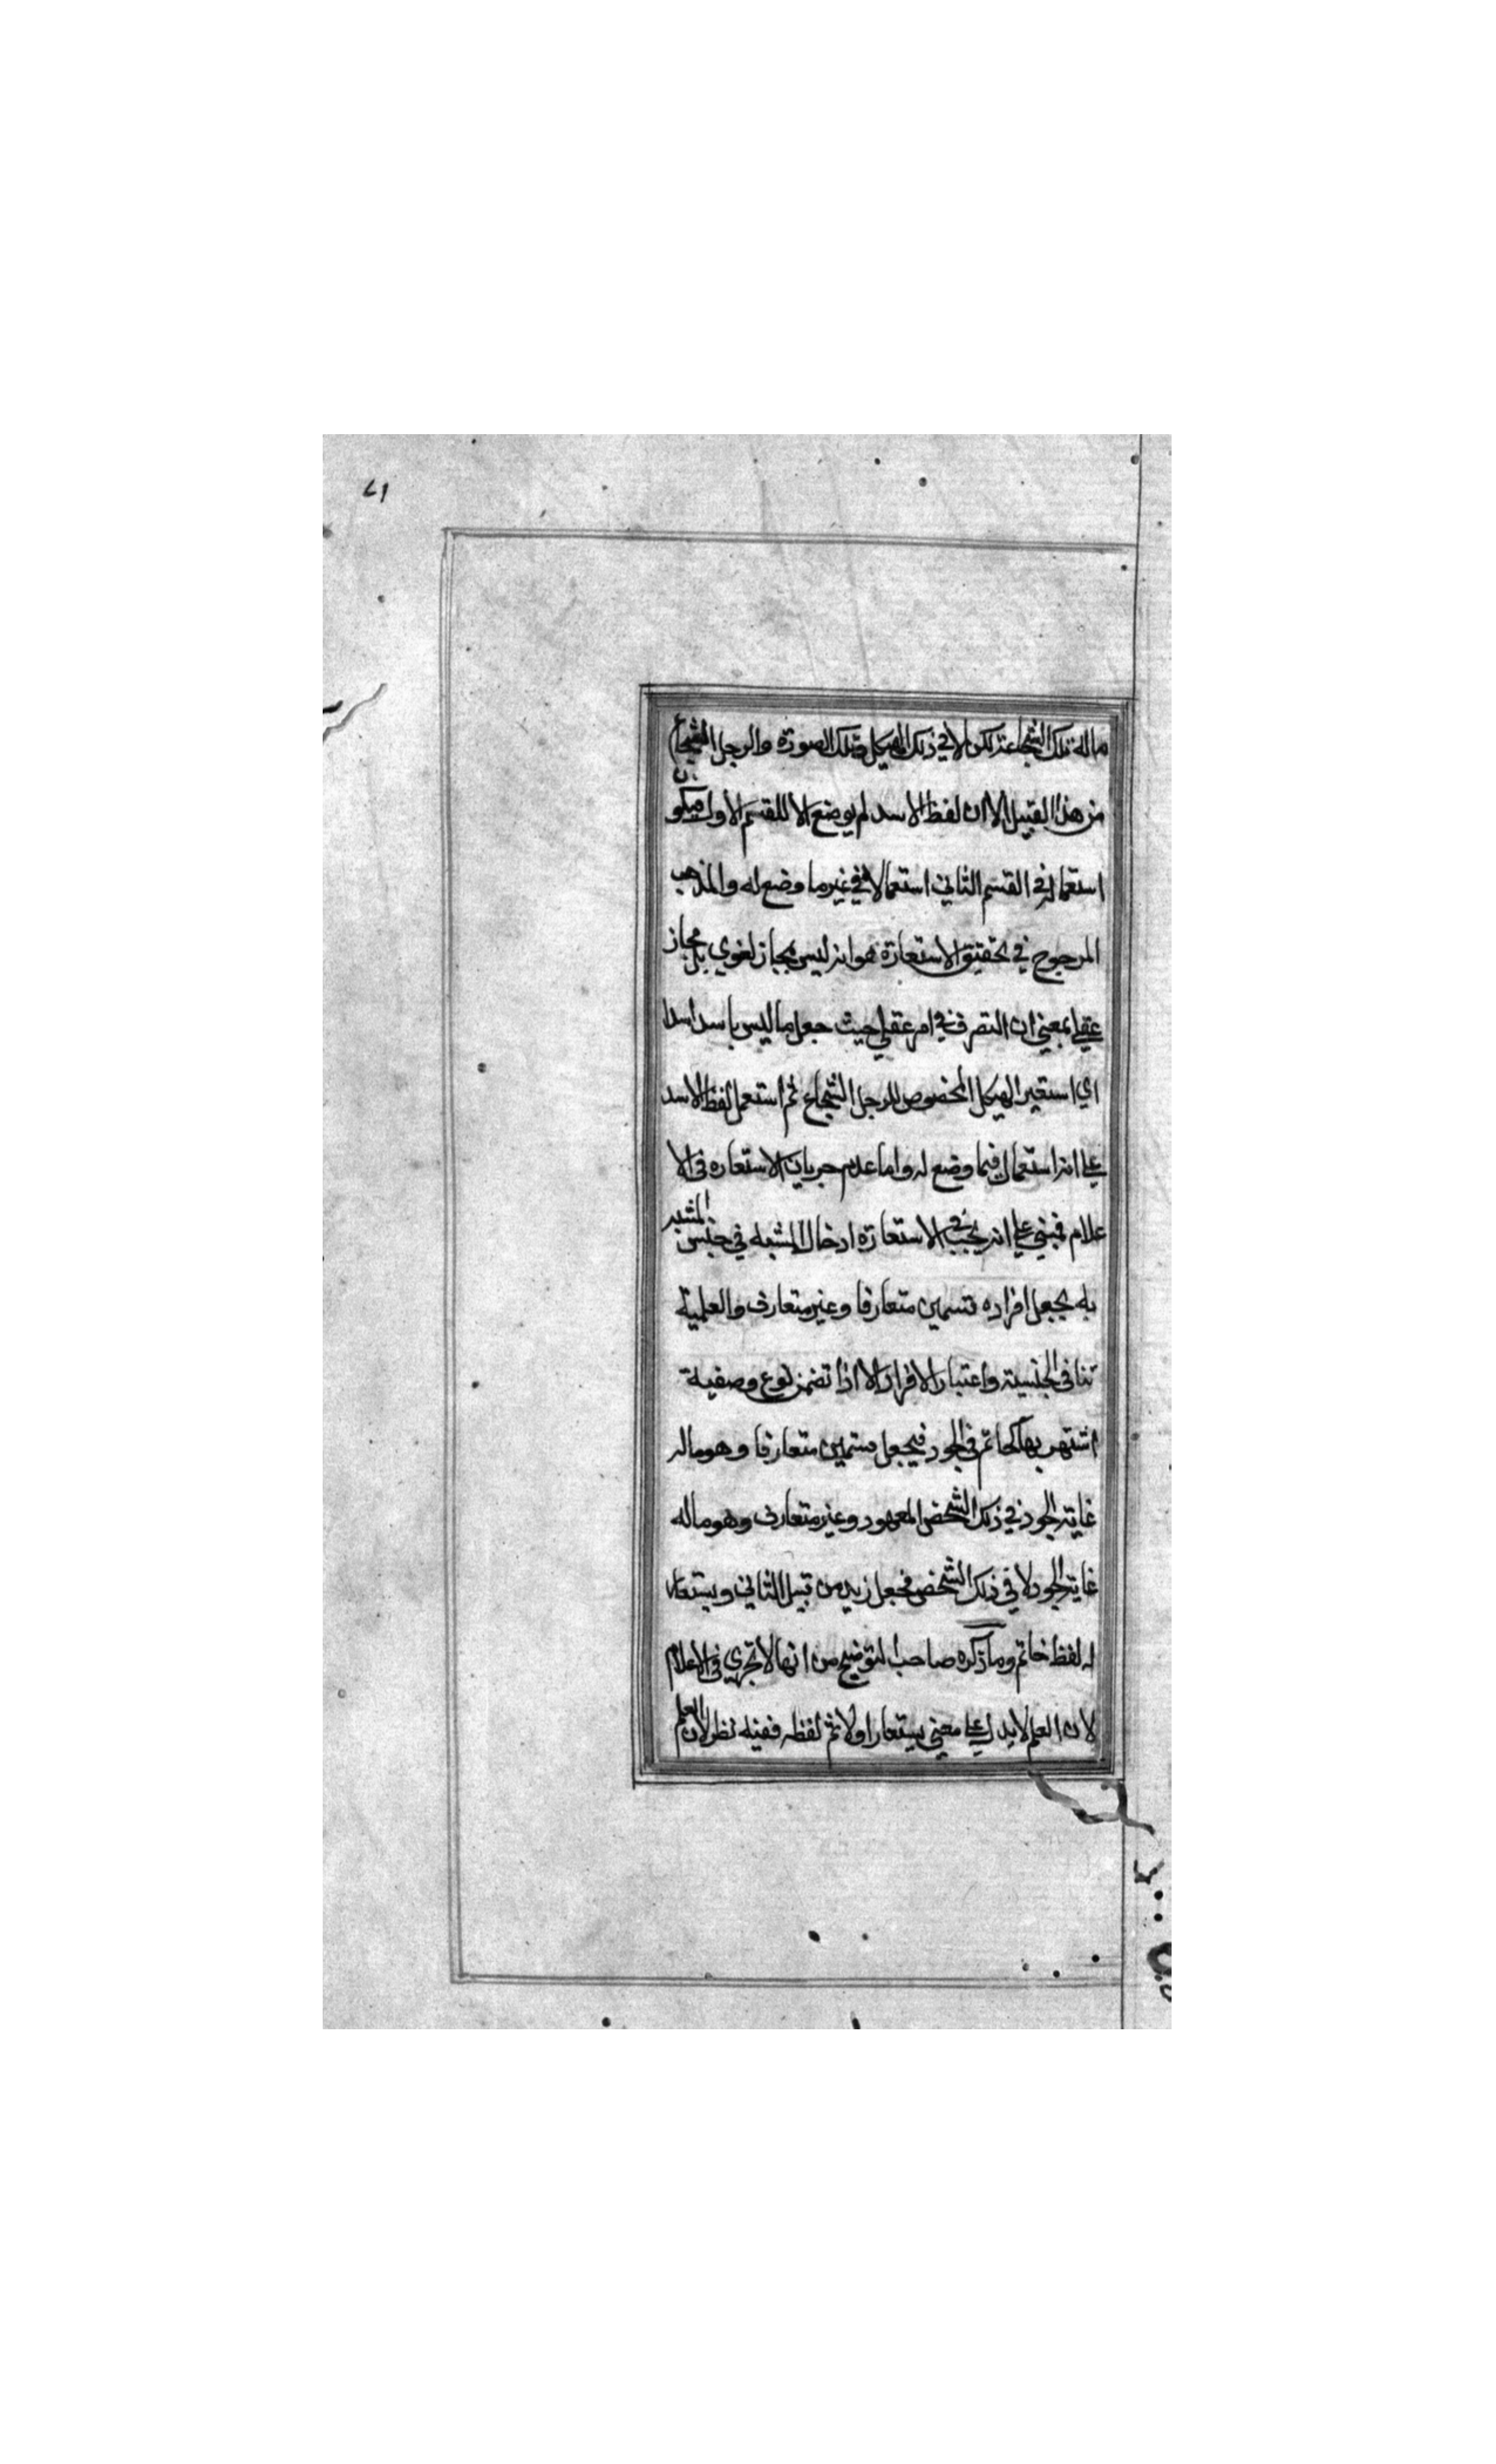 ٧١
ماله تلك الشجاعة لكن لا في ذلك الهيكل وتلك الصورة والرجل الشجاع
من هذا القبيل الا ان لفظ الاسد لم يوضع الا للقسم الاول فيكون
استعماله في القسم الثاني استعمالا في غير ما وضع له والمذهب
المرجوح في تحقيق الاستعارة هو انه ليس بمجاز لغوي بل مجاز
عقلي بمعني ان التصرف في امر عقلي حيث جعل ما ليس باسد اسدا
اي استعير الهيكل المخصوص للرجل الشجاع ثم استعمل لفظ الاسد
علي انه استعمال فيما وضع له واما عدم جريان الاستعارة في الا
علام فمبني علي انه يجب في الاستعارة ادخال المشبه في جنس المشبه
به بجعل افراده قسمين متعارفا وغير متعارف والعلمية
تنافي الجنسية واعتبار الافراد الا اذا تضمن نوع وصفية
اشتهر بها كحاتم في الجود فيجعل قسمين متعارفا وهو ماله
غاية الجود في ذلك الشخص المعهود وغير متعارف وهو ماله
غاية الجود لا في ذلك الشخص فجعل زيد من قبيل الثاني ويستعار
له لفظ حاتم وما ذكره صاحب التوضيح من انها لا تجري في الاعلام
لان العلم لا يدل علي معني يستعار اولا ثم لفظه ففيه نظر لان العلم